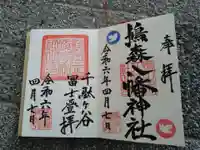 奉拝
鳩森八幡神社
令和六年四月七日
千駄ヶ谷
富士登拝
令和六年
四月七日